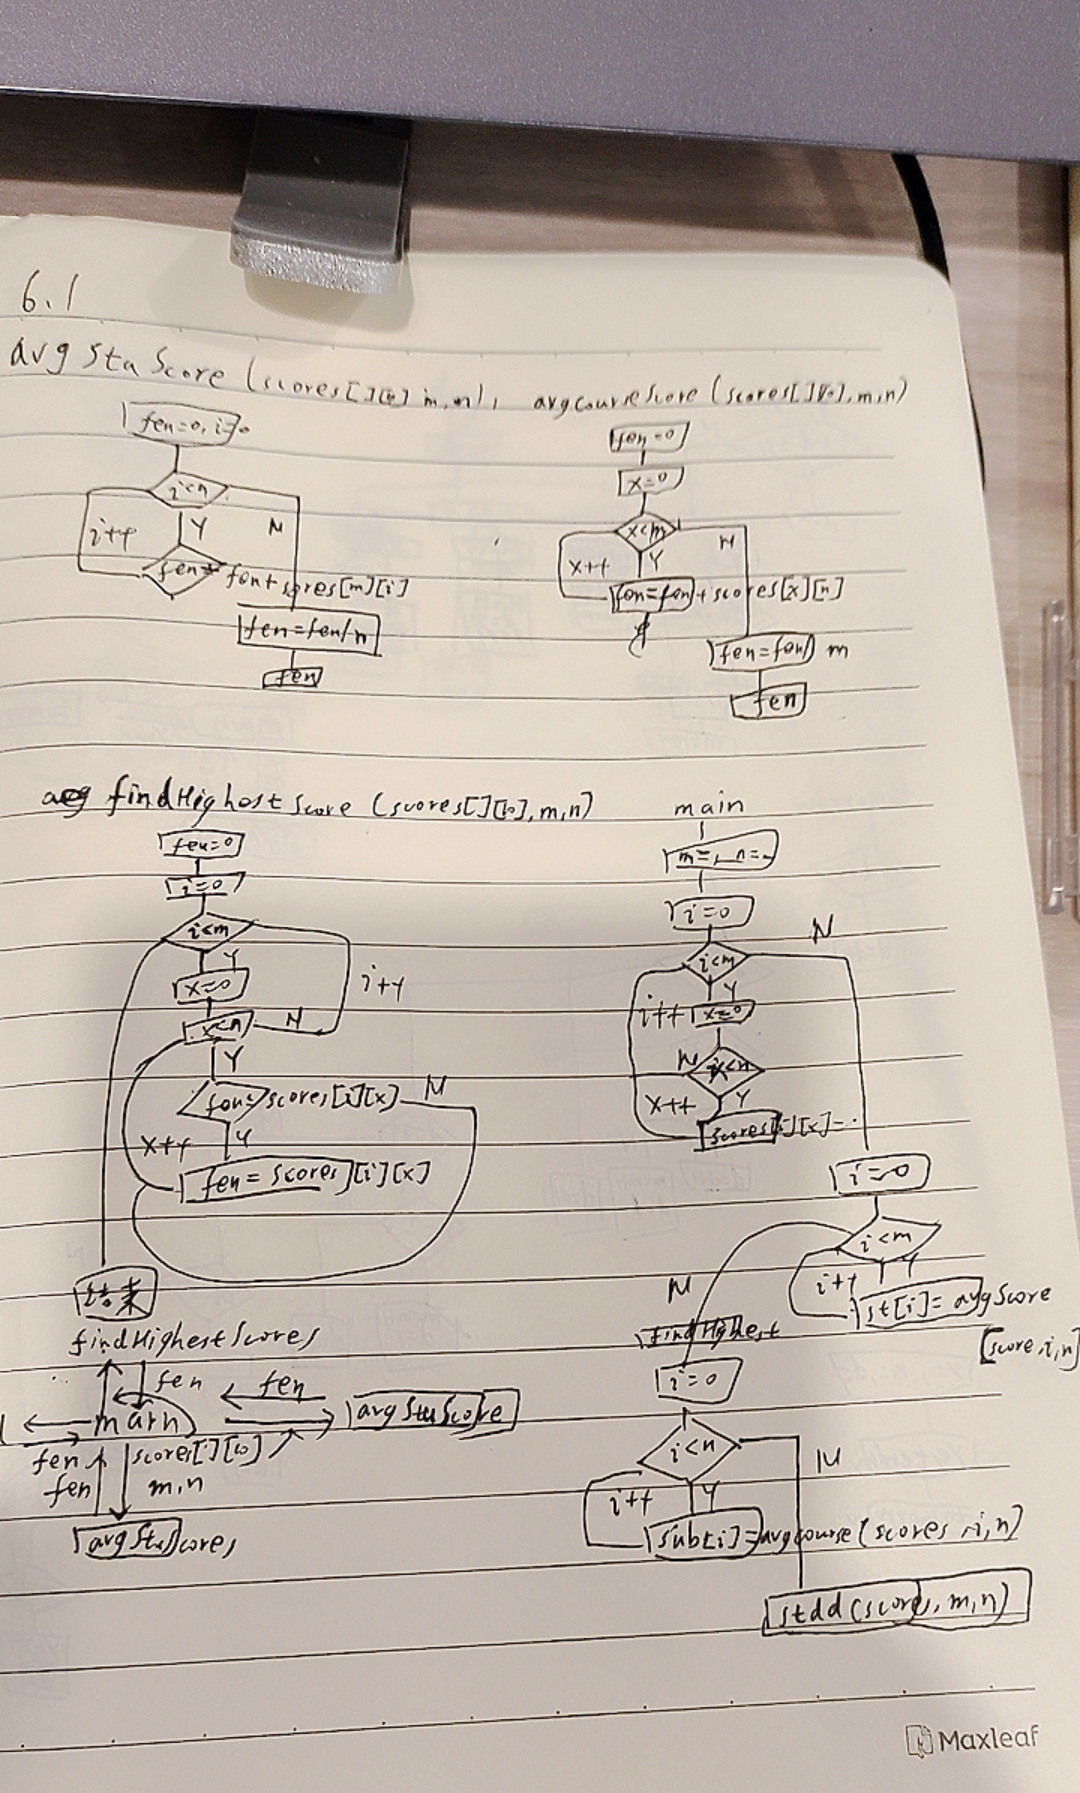 6.1
avg Stu Score (scores[][10] m,n), avgcourseScore (scores[][10], m,n)
fen=0, i=0
i<n
i++
Y
N
fen= fen+ scores[m][i]
fen=fen/n
fen
fen=0
x=0
x<m
x++
Y
N
fen=fen+scores[x][n]
fen=fen/m
fen
findHighest Score (scores[][10], m,n)
fen=0
i=0
i<m
Y
x=0
i++
x<n
N
Y
fen>scores[i][x]
N
x++
Y
fen=scores[i][x]
结束
main
m=, n=
i=0
i<m
N
Y
i++
x=0
x<n
N
Y
x++
scores[i][x]=
i=0
i<m
N
i++
Y
st[i]= avgScore
[score,i,n]
findHighest
i=0
i<n
N
i++
Y
sub[i]=avgcourse(scores,i,n)
stdd(scores,m,n)
findHighestScores
fen
fen
main
avgStuScore
fen
fen
scores[i][10]
m,n
avgStuScores
Maxleaf